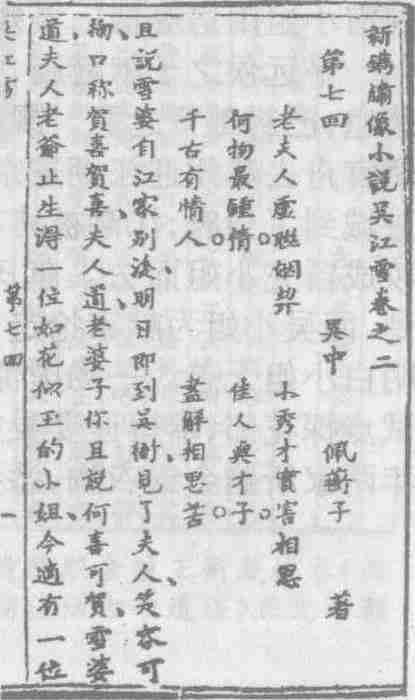 新鐫繡像小說吳江雪卷之二
第七囬 吳中 佩蘅子 著
老夫人虛聯姻契 小秀才實害相思
何物最鍾情。佳人與才子。
千古有情人、盡解相思苦
且說雪婆自江家別後明日即到吳衙見了夫人、笑容可
掬口稱賀喜賀喜、夫人道老婆子你且說何喜可賀、雪婆
道夫人老爺止生得一位如花似玉的小姐、今適有一位
吳江雪 第七囬 一